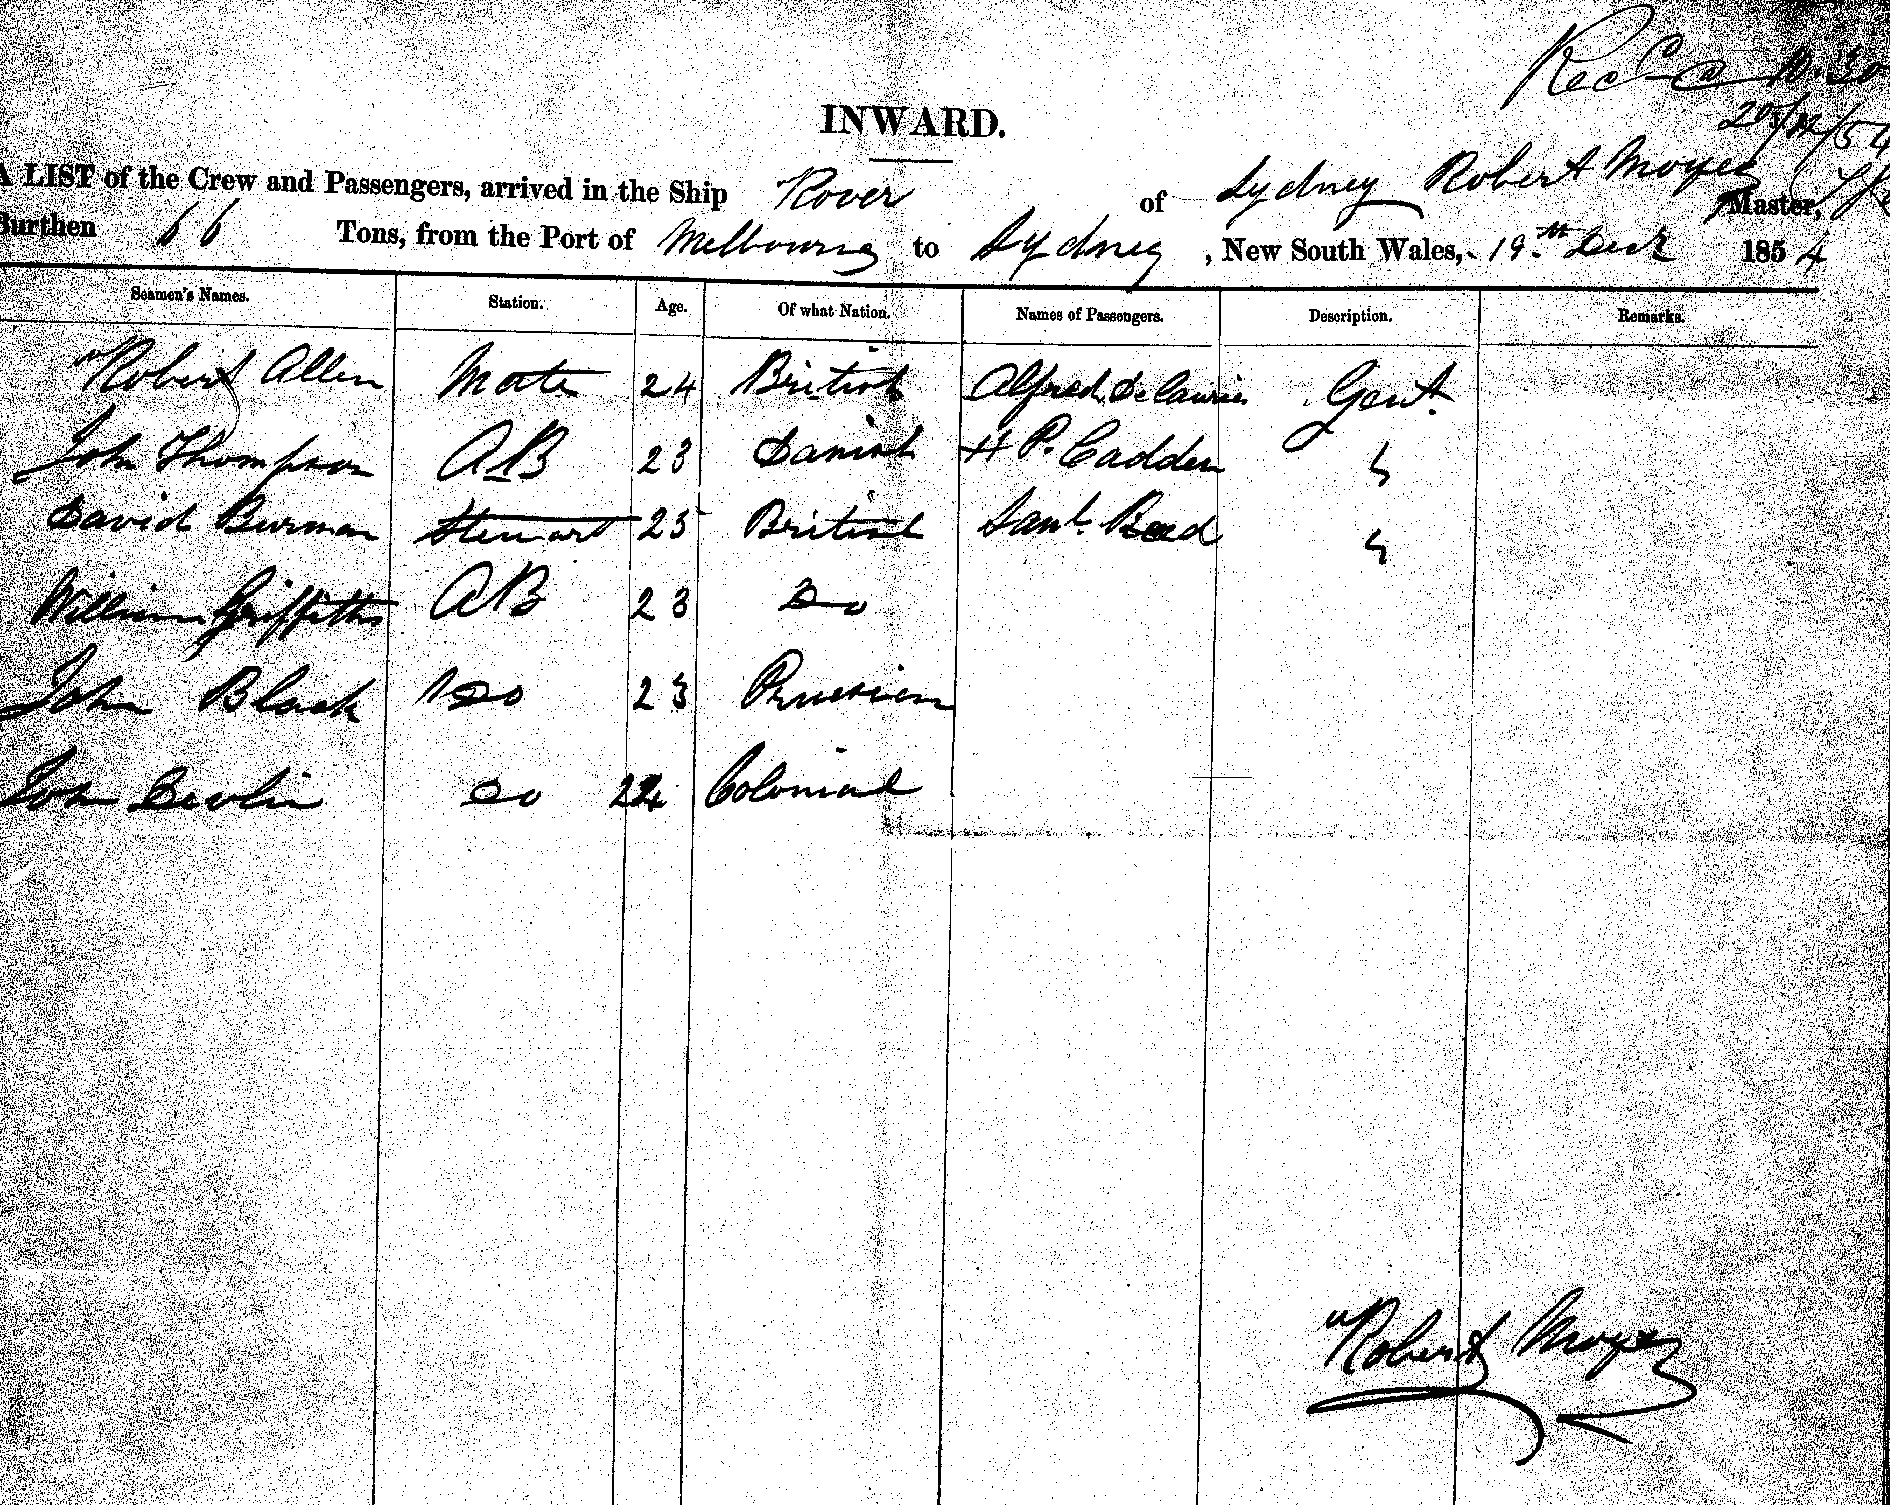 Recd @ 10.30
20/12/54
INWARD.
A LIST of the Crew and Passengers, arrived in the Ship Rover of Sydney Robert Moyes Master,
Burthen 66 Tons, from the Port of Melbourne to Sydney, New South Wales, 19th Decr 1854
Seamen's Names. Station. Age. Of what Nation. Names of Passengers. Description. Remarks.
Robert Allen Mate 24 British Alfred Gent.
John Thompson AB 23 Danish H P. Cadden "
David Burman Steward 25 British Saml. Read "
William Griffiths AB 23 Do
John Black Do 23 Prussian
John Devlin Do 24 Colonial
Robert Moyes